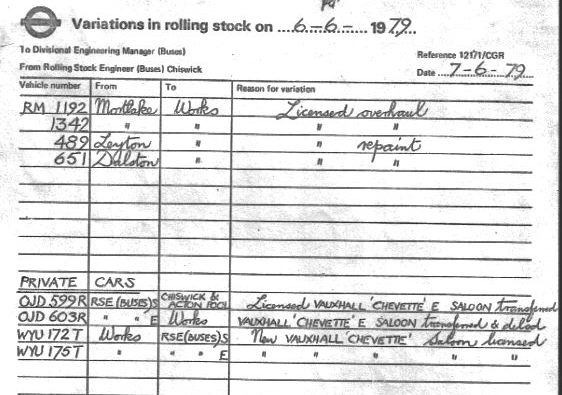 Variations in rolling stock on ....6-6-..... 1979...
To Divisional Engineering Manager (Buses)
Reference 121/1/CGR
From Rolling Stock Engineer (Buses) Chiswick
Date ....7-6-79
Vehicle number From To Reason for variation
RM 1192 Mortlake Works Licensed overhaul
1342 " " " "
489 Leyton " " repaint
651 Dalston " " "
PRIVATE CARS
OJD 599R RSE(BUSES)S CHISWICK & ACTON POOL Licensed VAUXHALL 'CHEVETTE' E SALOON transferred
OJD 603R " " E Works VAUXHALL 'CHEVETTE' E SALOON transferred & delcd
WYU 172T Works RSE(BUSES)S New VAUXHALL 'CHEVETTE' Saloon licensed
WYU 175T " " E " " " " "